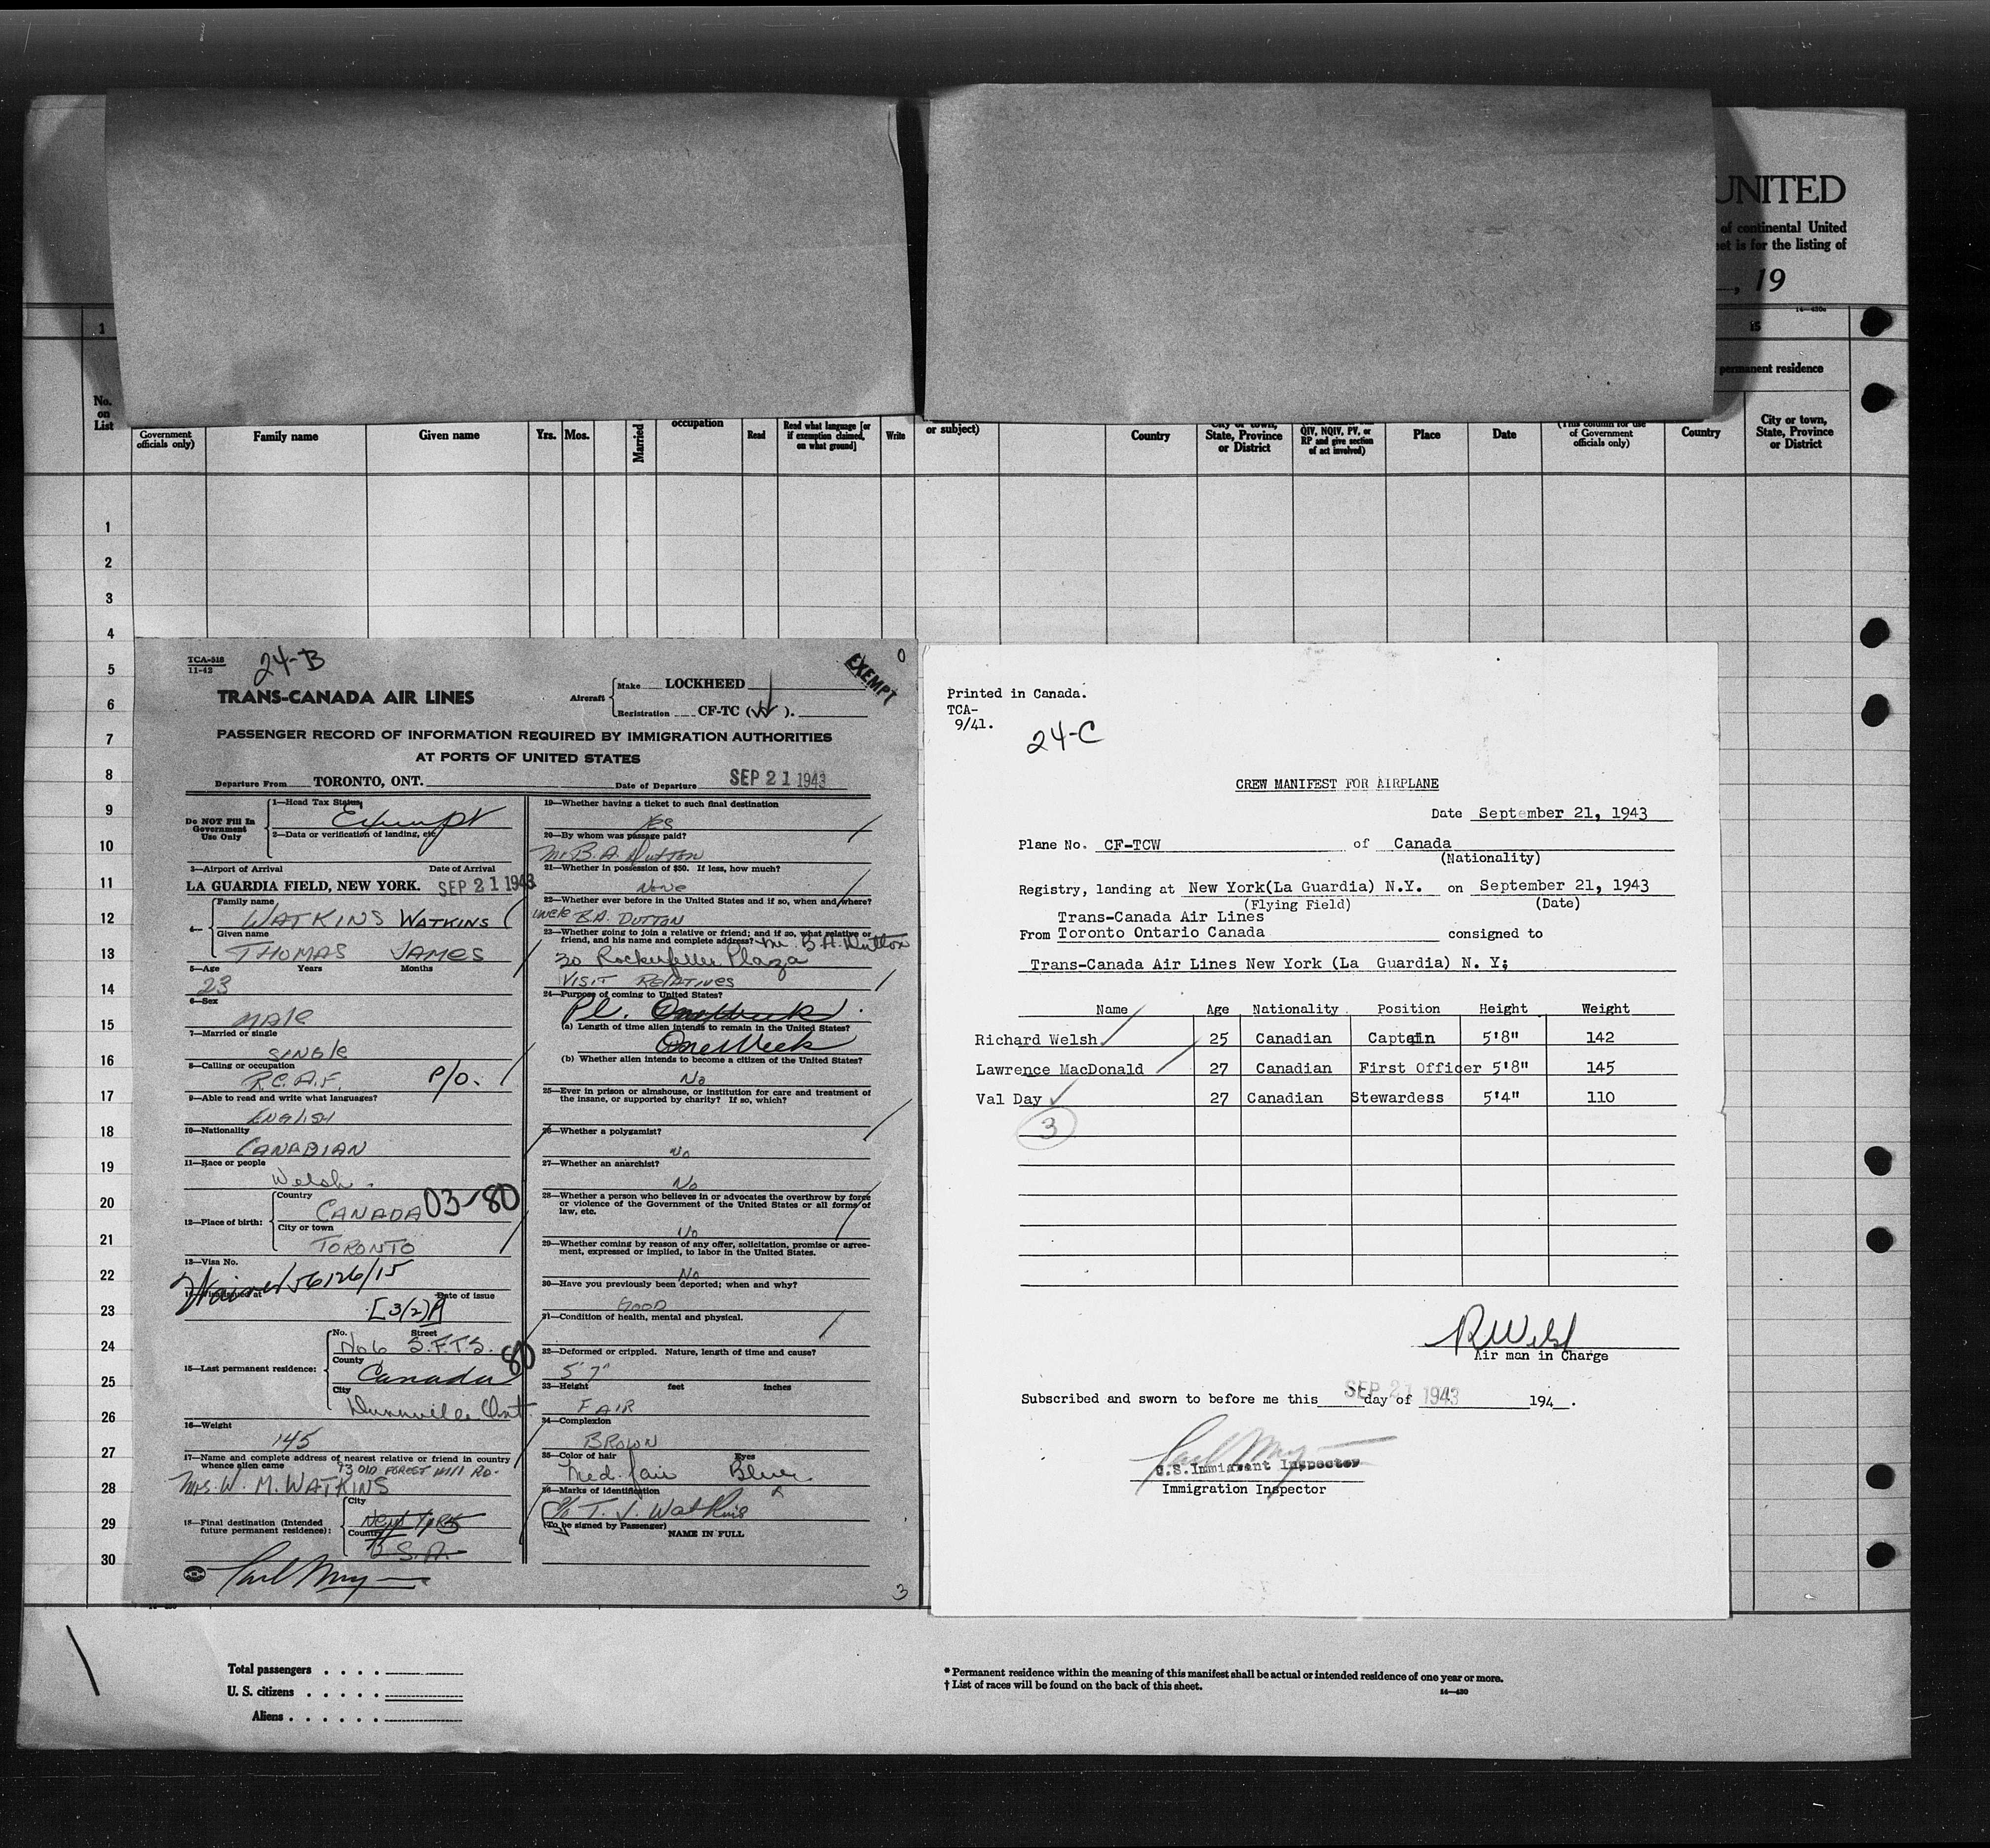 UNITED
of continental United
et is for the listing of
, 19
16—430a
1
15
permanent residence
No.
on
List
Government
officials only)
Family name
Given name
Yrs.
Mos.
Married
occupation
Read
Read what language [or
if exemption claimed,
on what ground]
Write
or subject)
Country
City or town,
State, Province
or District
QIV, NQIV, PV, or
RP and give section
of act involved)
Place
Date
(This column for use
of Government
officials only)
Country
City or town,
State, Province
or District
1
2
3
4
5
6
7
8
9
10
11
12
13
14
15
16
17
18
19
20
21
22
23
24
25
26
27
28
29
30
TCA-518
11-42
24-B
0
EXEMPT
TRANS-CANADA AIR LINES
Aircraft
Make LOCKHEED
Registration CF-TC (W).
PASSENGER RECORD OF INFORMATION REQUIRED BY IMMIGRATION AUTHORITIES
AT PORTS OF UNITED STATES
Departure From TORONTO, ONT.
Date of Departure SEP 21 1943
Do NOT Fill In
Government
Use Only
1—Head Tax Status
Exempt
2—Data or verification of landing, etc.
3—Airport of Arrival Date of Arrival
LA GUARDIA FIELD, NEW YORK. SEP 21 1943
4—
Family name
WATKINS WATKINS
Given name
THOMAS JAMES
5—Age Years Months
23
6—Sex
MALE
7—Married or single
SINGLE
8—Calling or occupation
R.C.A.F. P/O.
9—Able to read and write what languages?
ENGLISH
10—Nationality
CANADIAN
11—Race or people
Welsh.
12—Place of birth:
Country
CANADA 03-80
City or town
TORONTO
13—Visa No.
56126/15
14—Visa issued at Date of issue
[3(2)]
15—Last permanent residence:
No. Street
No 6 S.F.T.S. 80
County
Canada
City
Dunnville Ont.
16—Weight
145
17—Name and complete address of nearest relative or friend in country
whence alien came
93 OLD FOREST HILL RD.
Mrs. W. M. WATKINS
18—Final destination (Intended
future permanent residence):
City
New York
Country
U.S.A.
19—Whether having a ticket to such final destination
Yes
20—By whom was passage paid?
Mr. B.A. Dutton
21—Whether in possession of $50. If less, how much?
None
22—Whether ever before in the United States and if so, when and where?
Uncle B.A. DUTTON
23—Whether going to join a relative or friend; and if so, what relative or
friend, and his name and complete address? Mr. B.A. Dutton
30 Rockefeller Plaza
VISIT RELATIVES
24—Purpose of coming to United States?
Pl. One Week
(a) Length of time alien intends to remain in the United States?
One Week
(b) Whether alien intends to become a citizen of the United States?
No
25—Ever in prison or almshouse, or institution for care and treatment of
the insane, or supported by charity? If so, which?
26—Whether a polygamist?
No
27—Whether an anarchist?
No
28—Whether a person who believes in or advocates the overthrow by force
or violence of the Government of the United States or all forms of
law, etc.
No
29—Whether coming by reason of any offer, solicitation, promise or agree-
ment, expressed or implied, to labor in the United States.
No
30—Have you previously been deported; when and why?
GOOD
31—Condition of health, mental and physical.
32—Deformed or crippled. Nature, length of time and cause?
5'7"
33—Height feet inches
FAIR
34—Complexion
BROWN
35—Color of hair Eyes
Med. fair Blue
36—Marks of identification
T. J. Watkins
(To be signed by Passenger)
NAME IN FULL
3
Printed in Canada.
TCA-
9/41.
24-C
CREW MANIFEST FOR AIRPLANE
Date September 21, 1943
Plane No. CF-TCW of Canada
(Nationality)
Registry, landing at New York(La Guardia) N.Y. on September 21, 1943
(Flying Field) (Date)
Trans-Canada Air Lines
From Toronto Ontario Canada consigned to
Trans-Canada Air Lines New York (La Guardia) N. Y;
Name Age Nationality Position Height Weight
Richard Welsh 25 Canadian Captain 5'8" 142
Lawrence MacDonald 27 Canadian First Officer 5'8" 145
Val Day 27 Canadian Stewardess 5'4" 110
3
R Welsh
Air man in Charge
Subscribed and sworn to before me this SEP 21 day of 1943 194 .
U.S. Immigrant Inspector
Immigration Inspector
Total passengers . . . .
U. S. citizens . . . . .
Aliens . . . . . .
* Permanent residence within the meaning of this manifest shall be actual or intended residence of one year or more.
† List of races will be found on the back of this sheet.
14—430